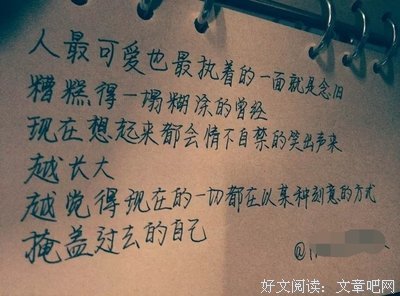 人最可爱也最执着的一面就是念旧
糟糕得一塌糊涂的曾经
现在想起来都会情不自禁的笑出声来
越长大
越觉得现在的一切都在以某种刻意的方式
掩盖过去的自己
@
好文阅读：文章吧网